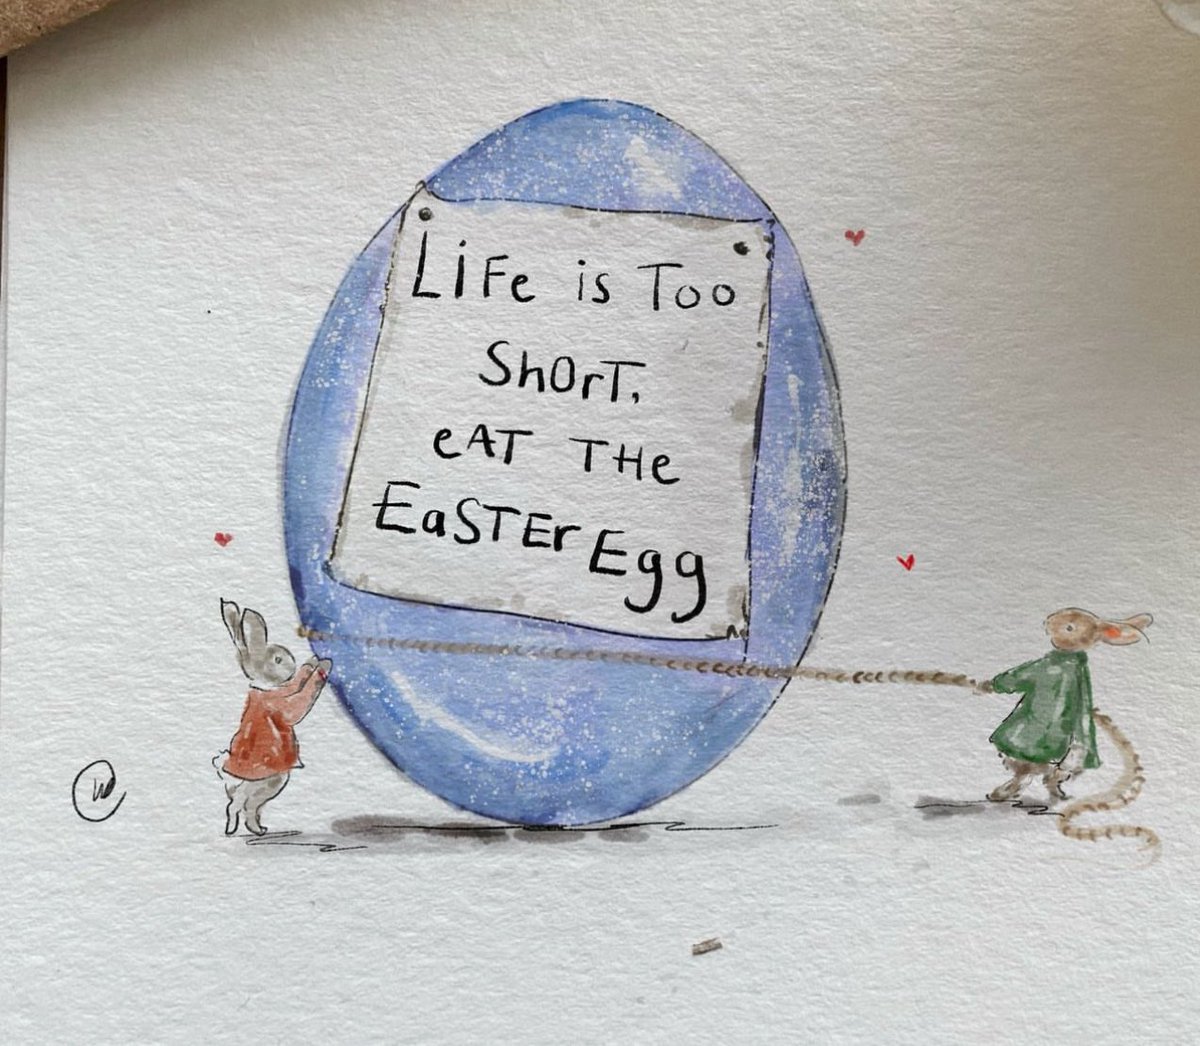 LiFe is Too
ShOrT,
eAT THe
EaSTEr Egg